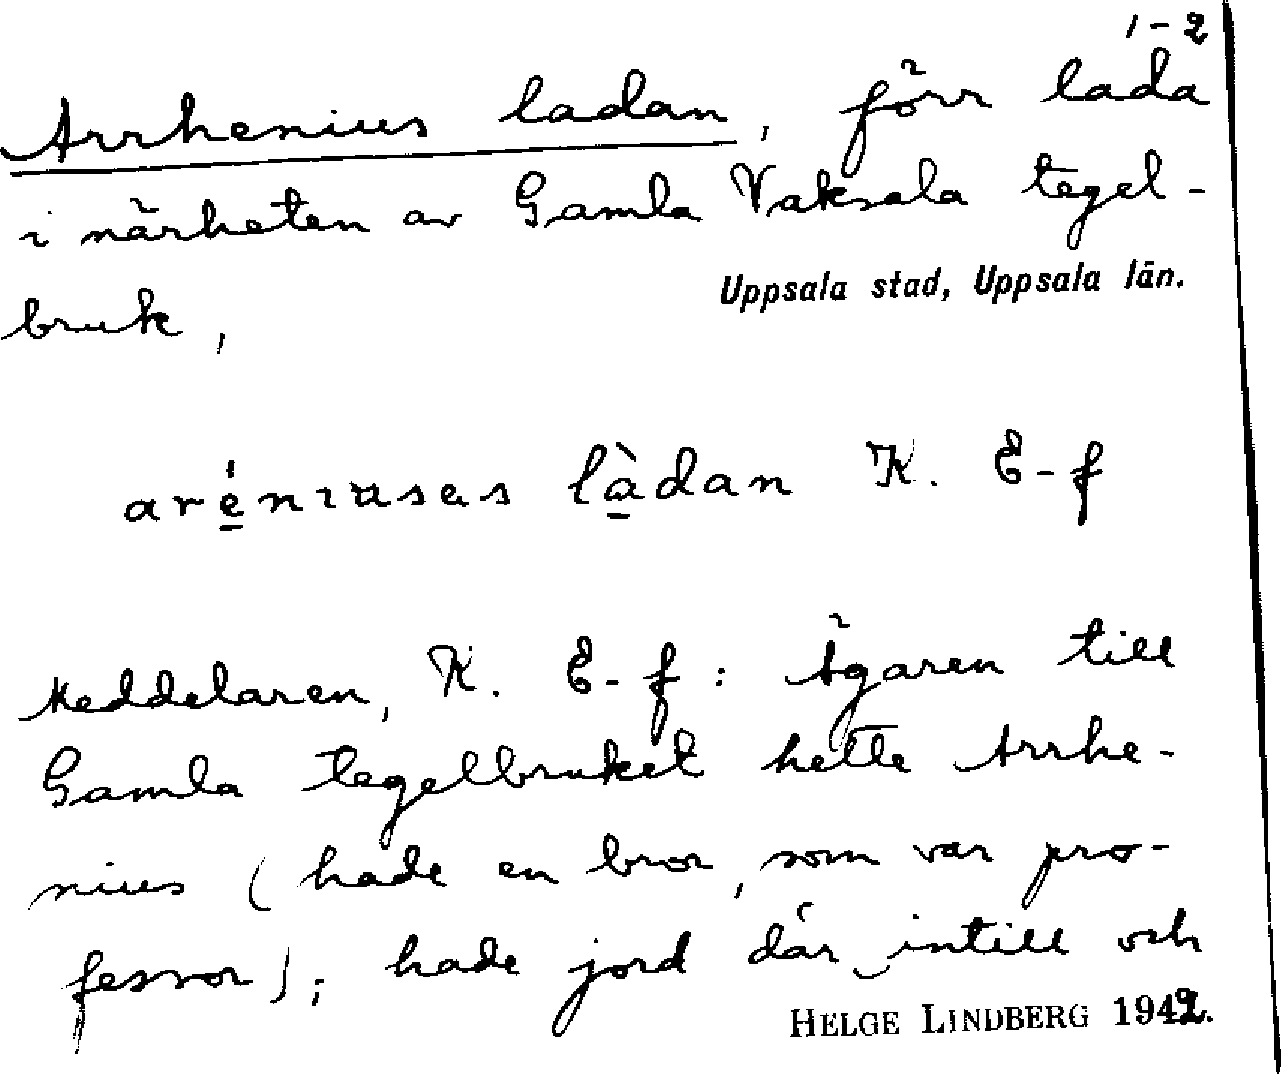 1-2
Arrhenius ladan, förr lada
i närheten av Gamla Vaksala tegel-
Uppsala stad, Uppsala län.
bruk,
aréniusas làdan K. E-f
Meddelaren, K. E-f: Ägaren till
Gamla tegelbruket hette Arrhe-
nius (hade en bror, som var pro-
fessor); hade jord där intill och
HELGE LINDBERG 1942.